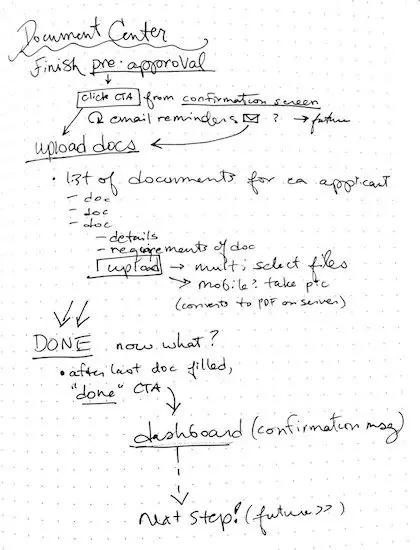 Document Center
Finish pre-approval
click CTA from confirmation screen
email reminders ? → future
upload docs
• list of documents for ea applicant
- doc
- doc
- doc
- details
- requirements of doc
upload → multi; select files
→ mobile? take pic
(converts to PDF on server)
DONE now what?
• after last doc filled,
"done" CTA
dashboard (confirmation msg)
next step? (future >>)